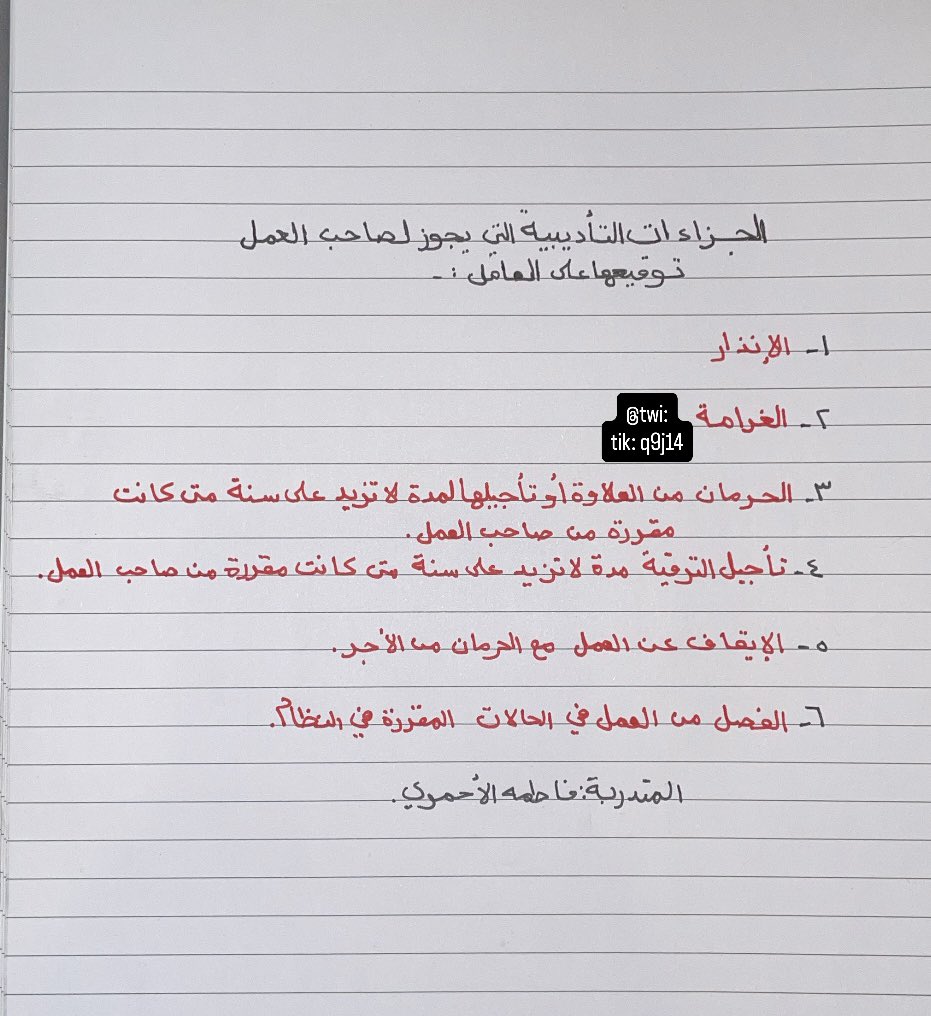 الجزاءات التأديبية التي يجوز لصاحب العمل
توقيعها على العامل :-
١- الإنذار
٢- الغرامة
@twi:
tik: q9j14
٣- الحرمان من العلاوة أو تأجيلها لمدة لا تزيد على سنة متى كانت
مقررة من صاحب العمل.
٤- تأجيل الترقية مدة لا تزيد على سنة متى كانت مقررة من صاحب العمل.
٥- الإيقاف عن العمل مع الحرمان من الأجر.
٦- الفصل من العمل في الحالات المقررة في النظام.
المتدربة: فاطمه الأحمري.